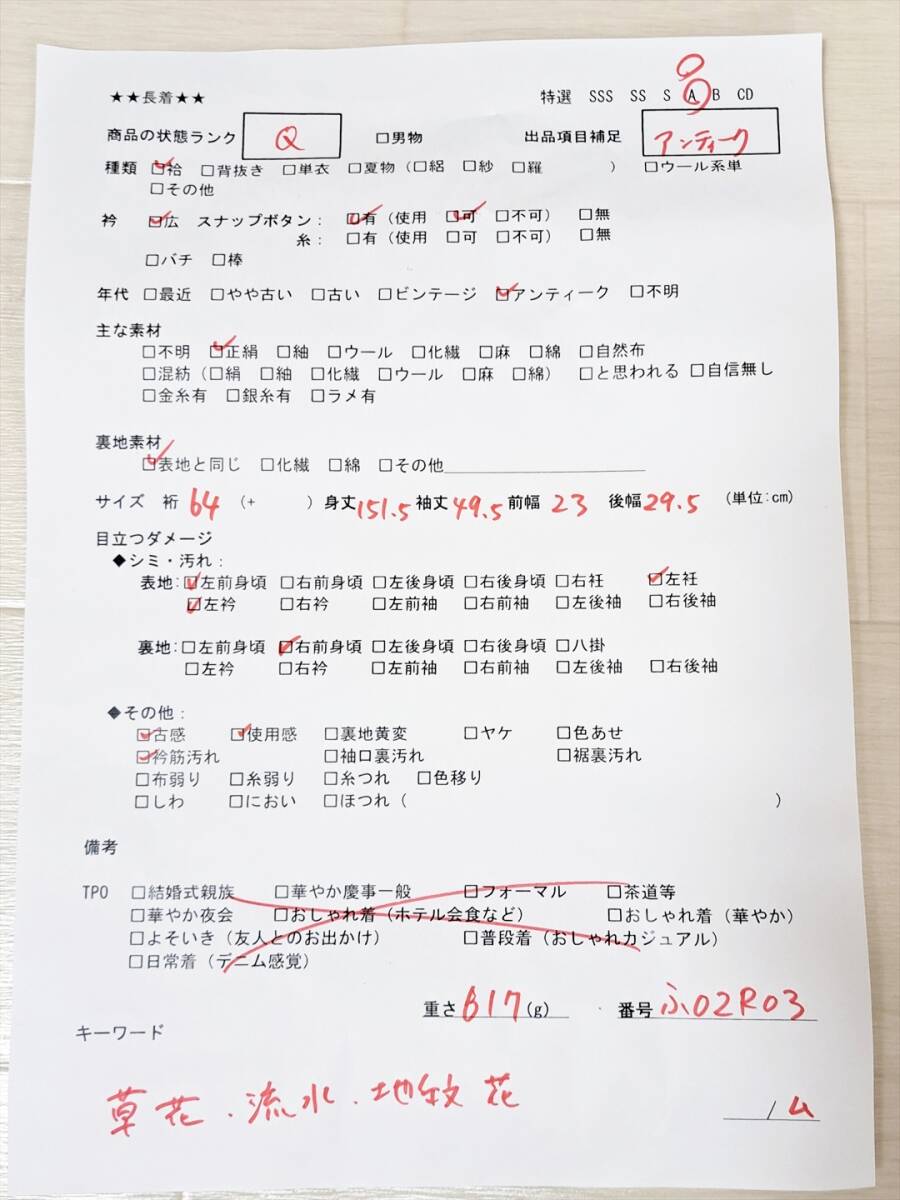 ★★長着★★ 特選 SSS SS S A B CD
商品の状態ランク Q □男物 出品項目補足 アンティーク
種類 ☑袷 □背抜き □単衣 □夏物（□絽 □紗 □羅 ） □ウール系単
□その他
衿 ☑広 スナップボタン： ☑有（使用 ☑可 □不可） □無
糸： □有（使用 □可 □不可） □無
□バチ □棒
年代 □最近 □やや古い □古い □ビンテージ ☑アンティーク □不明
主な素材
□不明 ☑正絹 □紬 □ウール □化繊 □麻 □綿 □自然布
□混紡（□絹 □紬 □化繊 □ウール □麻 □綿） □と思われる □自信無し
□金糸有 □銀糸有 □ラメ有
裏地素材
☑表地と同じ □化繊 □綿 □その他
サイズ 裄 64 （+ ）身丈151.5 袖丈49.5 前幅 23 後幅29.5 （単位:cm）
目立つダメージ
◆シミ・汚れ：
表地：☑左前身頃 □右前身頃 □左後身頃 □右後身頃 □右衽 ☑左衽
☑左衿 □右衿 □左前袖 □右前袖 □左後袖 □右後袖
裏地：□左前身頃 ☑右前身頃 □左後身頃 □右後身頃 □八掛
□左衿 □右衿 □左前袖 □右前袖 □左後袖 □右後袖
◆その他：
☑古感 ☑使用感 □裏地黄変 □ヤケ □色あせ
☑衿筋汚れ □袖口裏汚れ □裾裏汚れ
□布弱り □糸弱り □糸つれ □色移り
□しわ □におい □ほつれ（ ）
備考
TPO □結婚式親族 □華やか慶事一般 □フォーマル □茶道等
□華やか夜会 □おしゃれ着（ホテル会食など） □おしゃれ着（華やか）
□よそいき（友人とのお出かけ） □普段着（おしゃれカジュアル）
□日常着（デニム感覚）
重さ 617 (g) 番号 ふ02R03
キーワード
草花．流水．地紋 花
/ ム